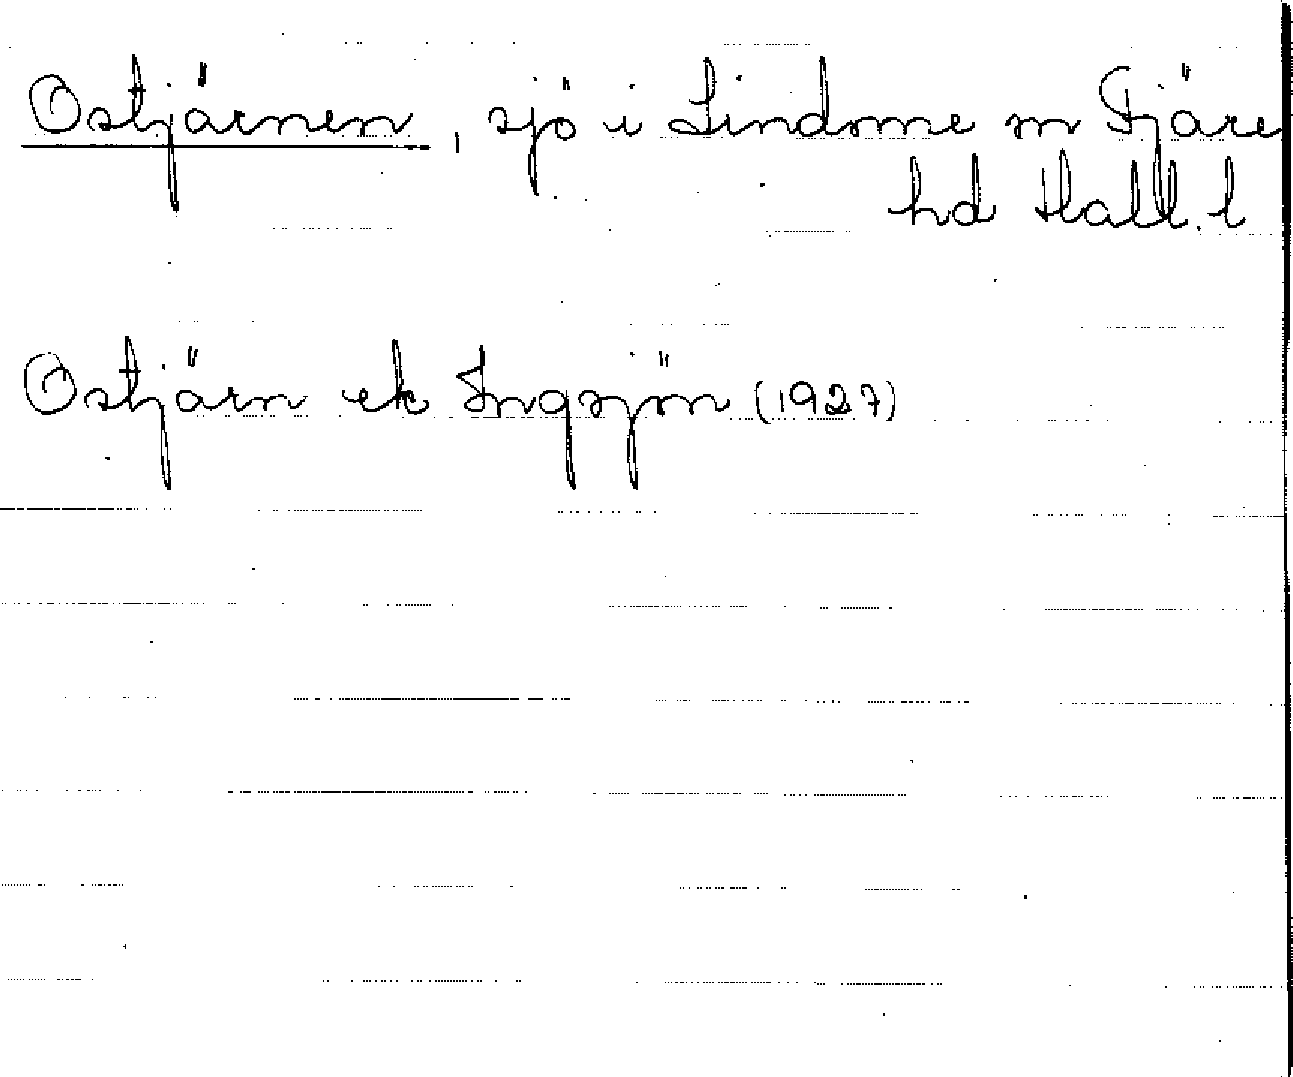 Ostjärnen, sjö i Lindome sn Fjäre
hd Hall. l
Ostjärn ek Ingsjön (1927)